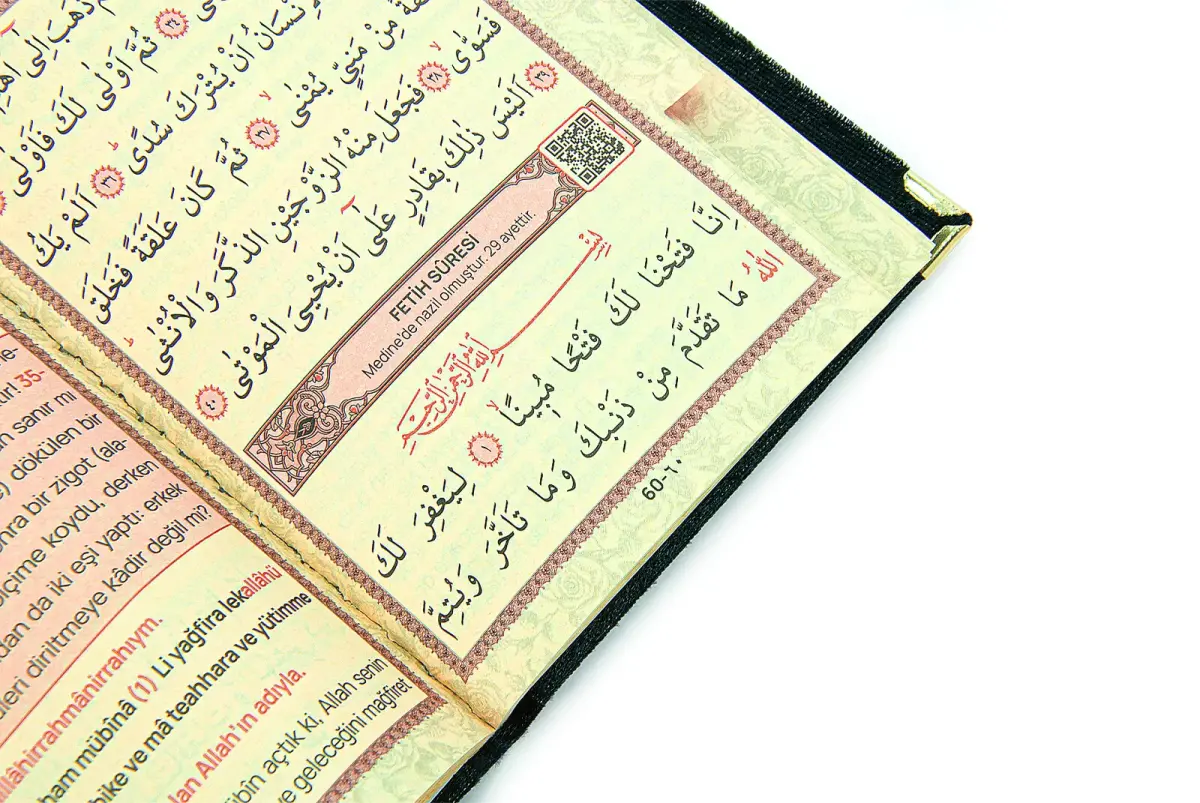 ذَهَبَ اِلٰٓى
﴿٣٤﴾ ثُمَّ اَوْلٰى لَكَ فَاَوْلٰى
اَنْ يُتْرَكَ سُدًىۜ ﴿٣٦﴾ اَلَمْ يَكُ
مِنْ مَنِيٍّ يُمْنٰىۙ ﴿٣٧﴾ ثُمَّ كَانَ عَلَقَةً فَخَلَقَ
فَسَوّٰىۙ ﴿٣٨﴾ فَجَعَلَ مِنْهُ الزَّوْجَيْنِ الذَّكَرَ وَالْاُنْثٰىۜ
﴿٣٩﴾ اَلَيْسَ ذٰلِكَ بِقَادِرٍ عَلٰٓى اَنْ يُحْيِيَ الْمَوْتٰى ﴿٤٠﴾
FETİH SÛRESİ
Medine'de nazil olmuştur. 29 ayettir.
بِسْمِ اللّٰهِ الرَّحْمٰنِ الرَّحِيمِ
اِنَّا فَتَحْنَا لَكَ فَتْحًا مُبِينًاۙ ﴿١﴾ لِيَغْفِرَ لَكَ
اللّٰهُ مَا تَقَدَّمَ مِنْ ذَنْبِكَ وَمَا تَاَخَّرَ وَيُتِمَّ
60-٦٠
35-
sanır mı
dökülen bir
bir zigot (ala-
biçime koydu, derken
da iki eşi yaptı: erkek
diriltmeye kâdir değil mi?
mübînâ (1) Li yağfira lekallâhü
ve mâ teahhara ve yütimme
Allah'ın adıyla.
açtık ki, Allah senin
ve geleceğini mağfiret